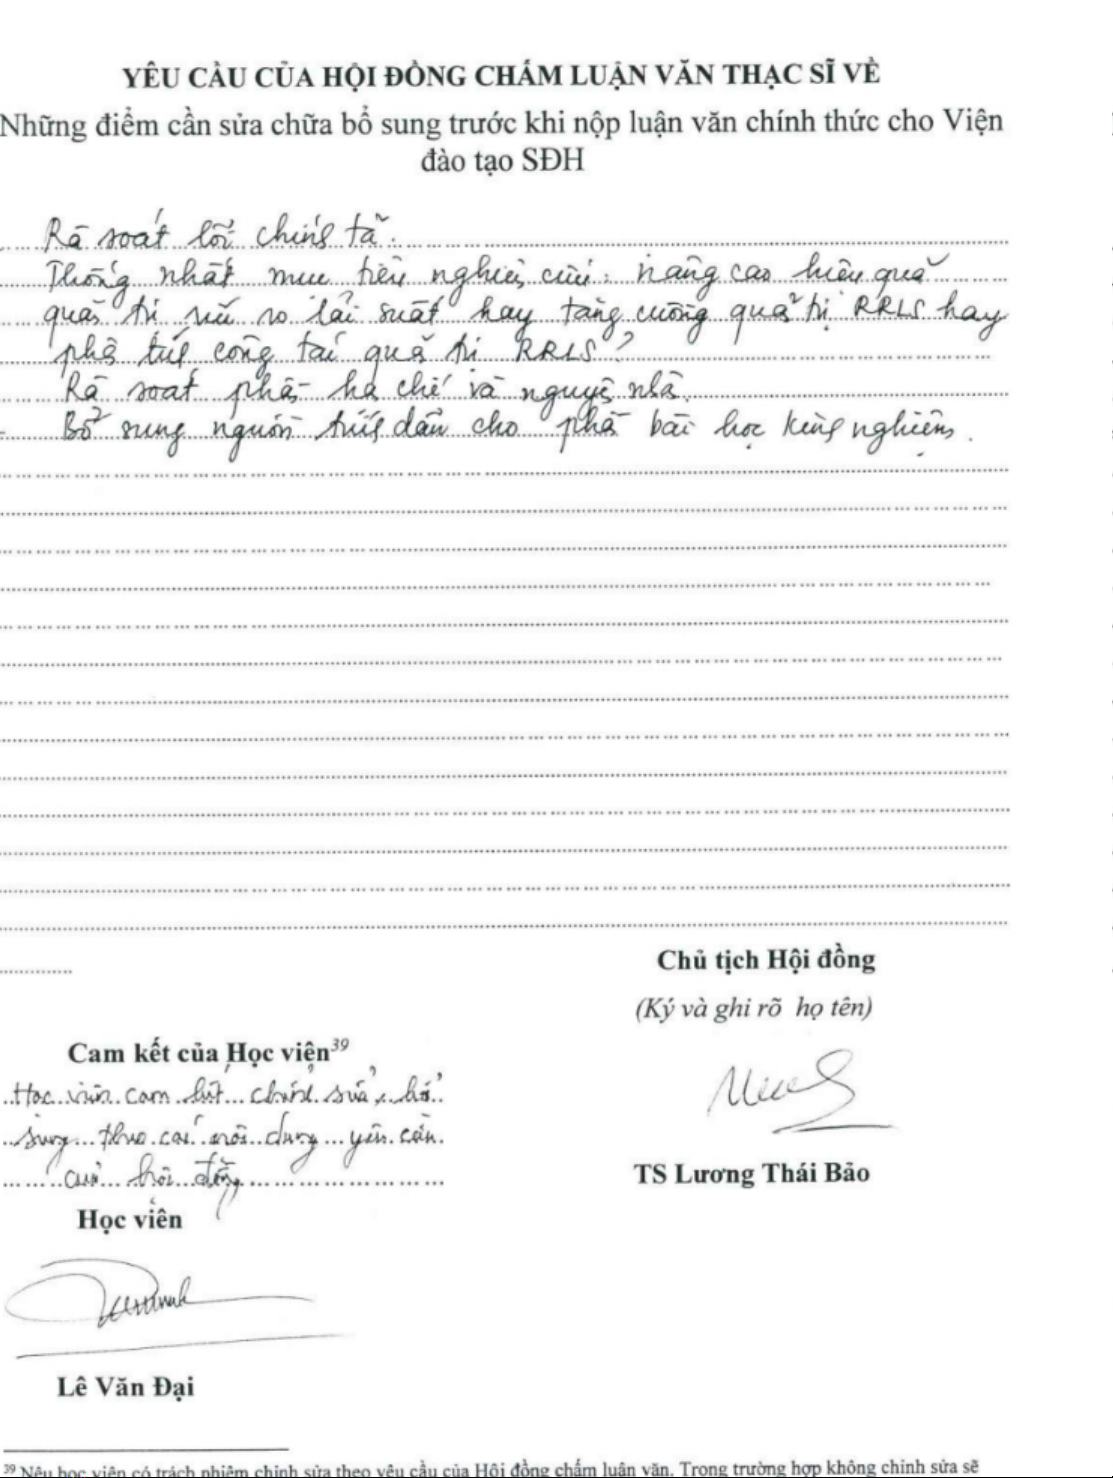 YÊU CẦU CỦA HỘI ĐỒNG CHẤM LUẬN VĂN THẠC SĨ VỀ
Những điểm cần sửa chữa bổ sung trước khi nộp luận văn chính thức cho Viện
đào tạo SĐH
Rà soát lỗi chính tả.
Thống nhất mục tiêu nghiên cứu: nâng cao hiệu quả
quản trị rủi ro lãi suất hay tăng cường quản trị RRLS hay
phân tích công tác quản trị RRLS?
Rà soát phần hạn chế và nguyên nhân.
- Bổ sung nguồn trích dẫn cho phần bài học kinh nghiệm.
Chủ tịch Hội đồng
(Ký và ghi rõ họ tên)
Cam kết của Học viên39
Học viên cam kết chỉnh sửa, bổ
sung theo các nội dung yêu cầu
của hội đồng
TS Lương Thái Bảo
Học viên
Lê Văn Đại
39 Nêu học viên có trách nhiệm chỉnh sửa theo yêu cầu của Hội đồng chấm luận văn. Trong trường hợp không chỉnh sửa sẽ